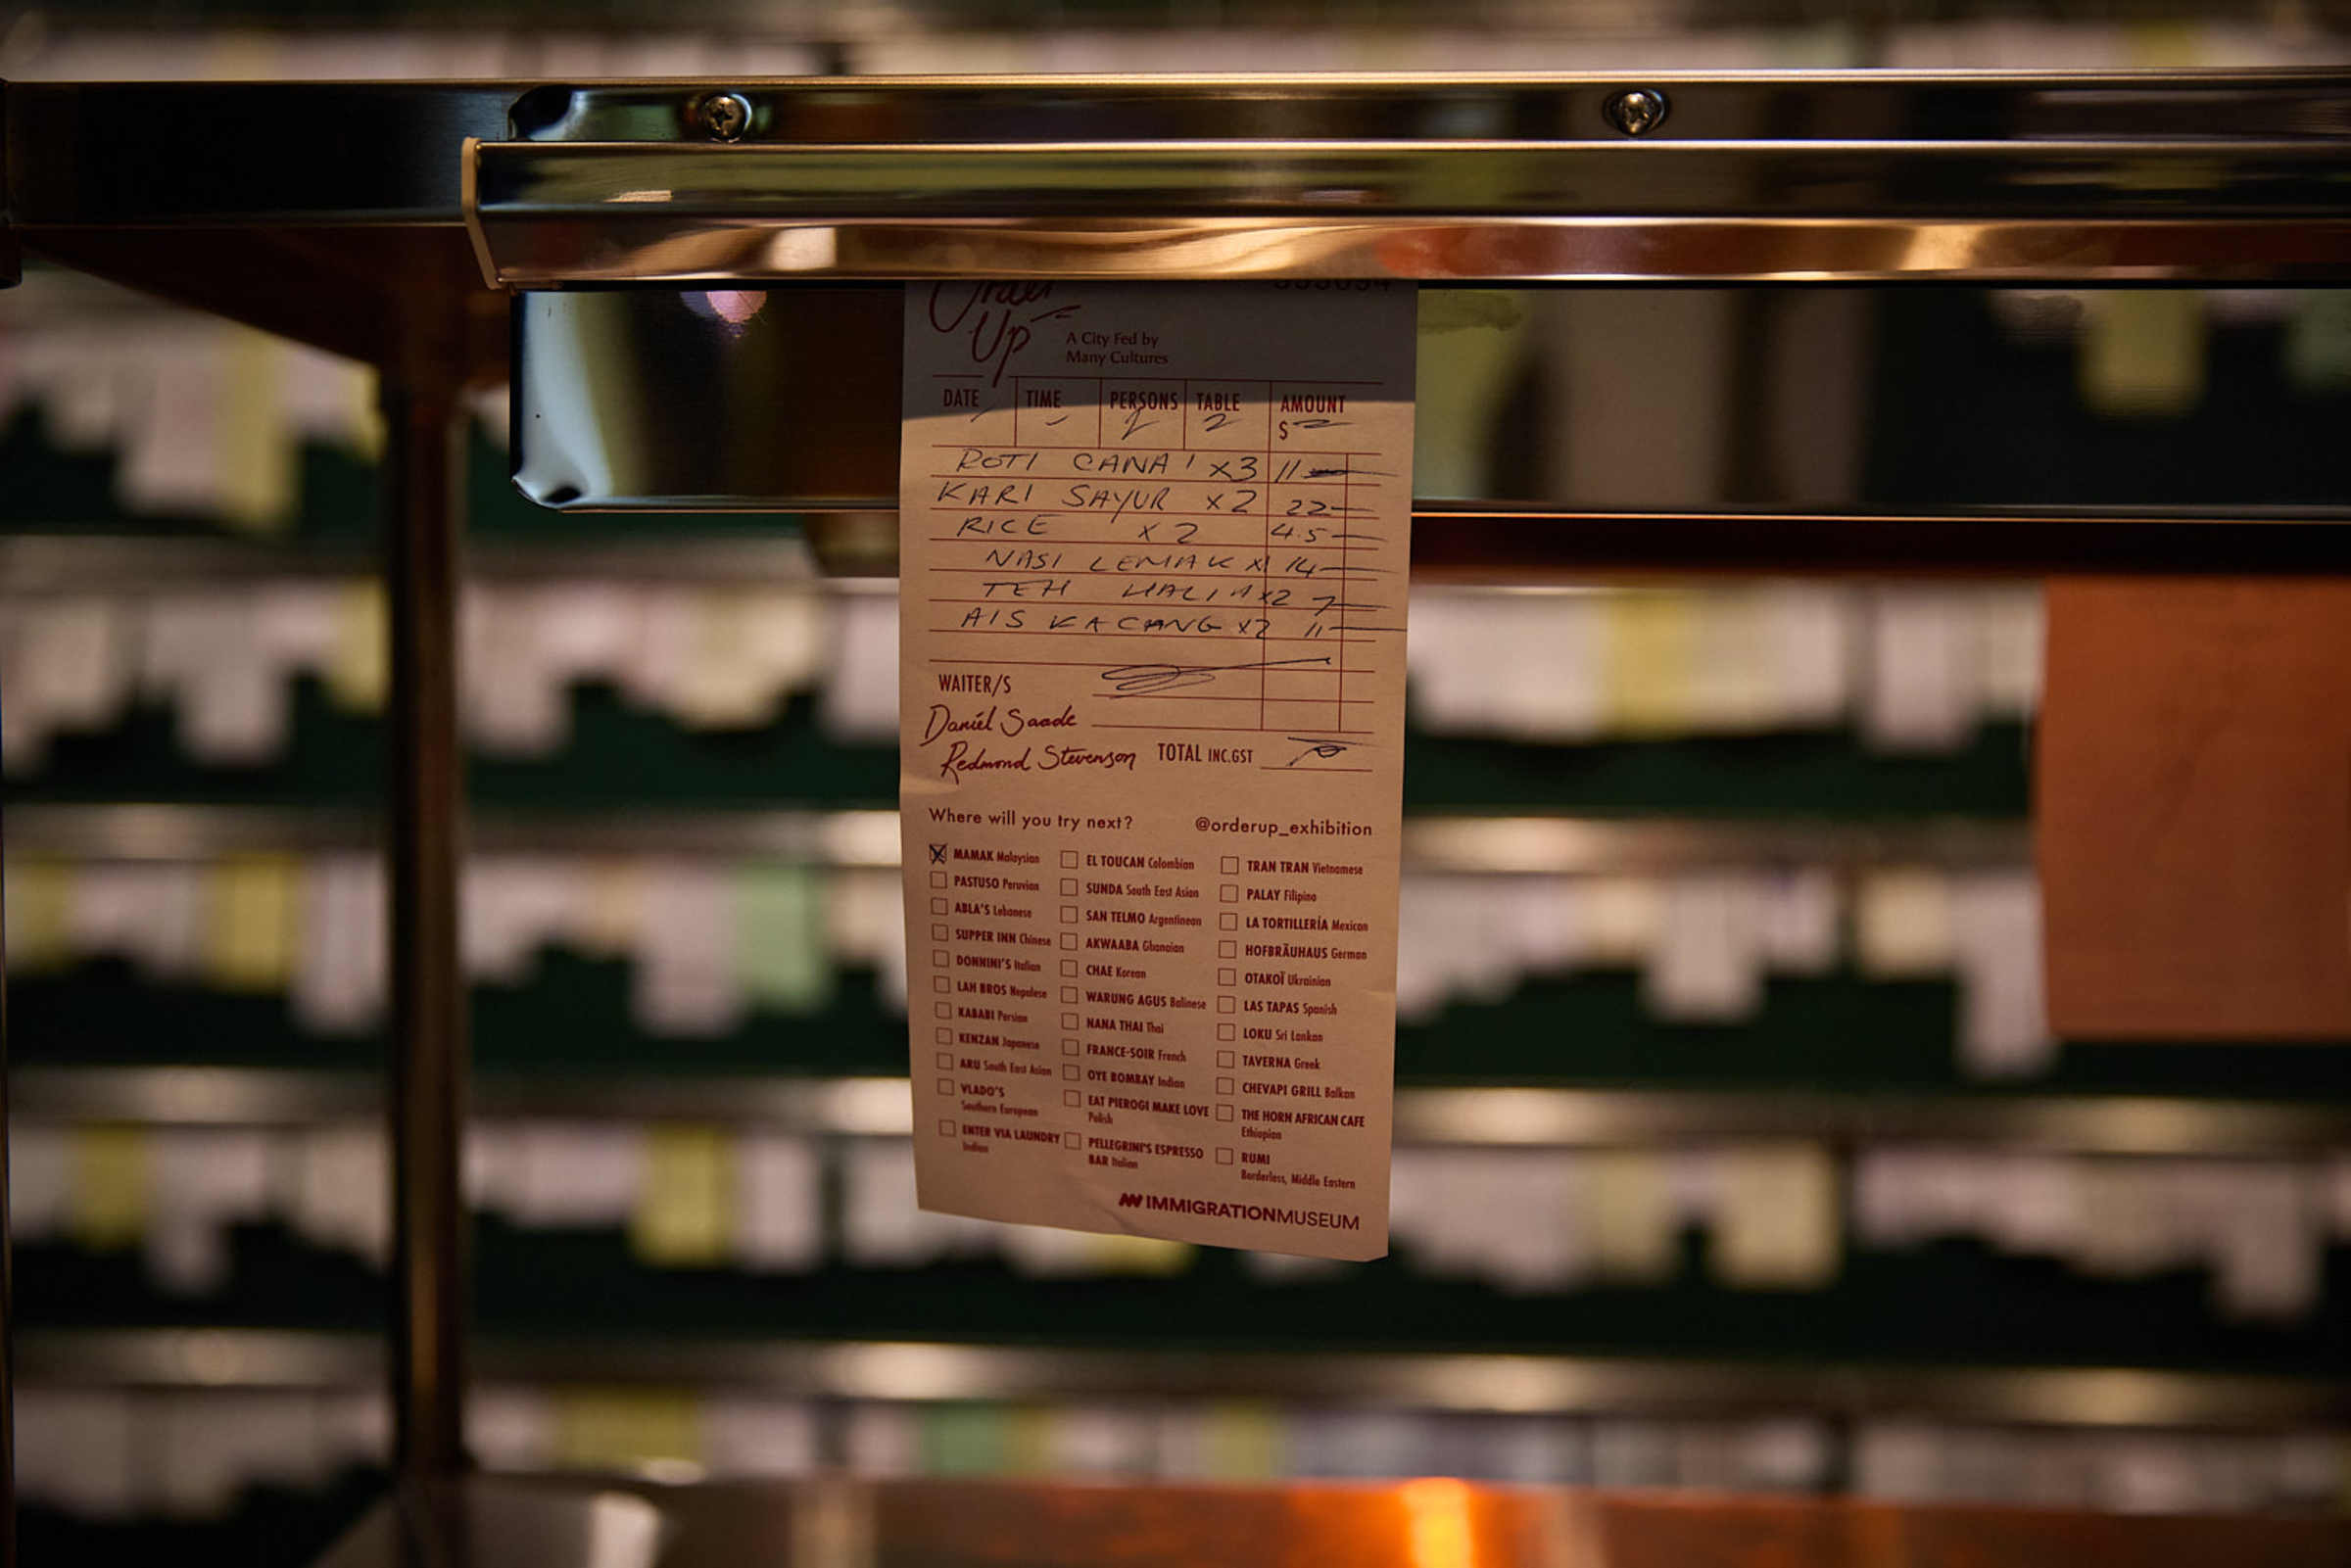 Order
Up
A City Fed by
Many Cultures
DATE TIME PERSONS TABLE AMOUNT
2 2 $
ROTI CANAI x3 11
KARI SAYUR x2 22
RICE x2 4.5
NASI LEMAK x1 14
TEH HALIA x2 7
AIS KACANG x2 11
WAITER/S
Daniel Saade
Redmond Stevenson TOTAL INC.GST
Where will you try next? @orderup_exhibition
MAMAK Malaysian EL TOUCAN Colombian TRAN TRAN Vietnamese
PASTUSO Peruvian SUNDA South East Asian PALAY Filipino
ABLA'S Lebanese SAN TELMO Argentinean LA TORTILLERÍA Mexican
SUPPER INN Chinese AKWAABA Ghanaian HOFBRÄUHAUS German
DONNINI'S Italian CHAE Korean OTAKOÏ Ukrainian
LAH BROS Nepalese WARUNG AGUS Balinese LAS TAPAS Spanish
KABABI Persian NANA THAI Thai LOKU Sri Lankan
KENZAN Japanese FRANCE-SOIR French TAVERNA Greek
ARU South East Asian OYE BOMBAY Indian CHEVAPI GRILL Balkan
VLADO'S EAT PIEROGI MAKE LOVE THE HORN AFRICAN CAFE
Southern European Polish Ethiopian
ENTER VIA LAUNDRY PELLEGRINI'S ESPRESSO RUMI
Indian BAR Italian Borderless, Middle Eastern
IMMIGRATIONMUSEUM